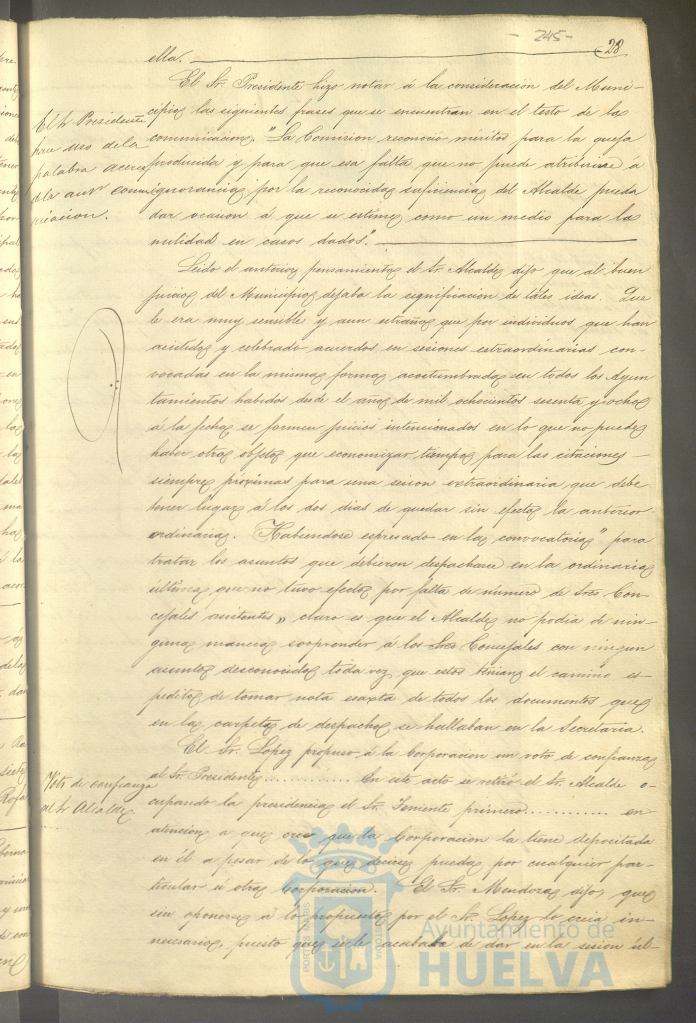 - 245 -
28
ella.
El Sr. Presidente hizo notar á la consideracion del Muni-
cipio las siguientes frases que se encuentran en el testo de la
comunicacion. "La Comision reconoció méritos para la queja
producida y para que esa falta que no puede atribuirse á
ignorancia por la reconocida suficiencia del Alcalde pueda
dar ocasion á que se estime como un medio para la
nulidad en casos dados".
El Sr. Presidente
hace uso de la
palabra acerca
de la antr comu-
nicacion.
Leido el anterior pensamiento el Sr. Alcalde dijo que al buen
juicio del Municipio dejaba la significacion de tales ideas. Que
le era muy sensible y aun estraño que por individuos que han
asistido y celebrado acuerdos en sesiones estraordinarias con-
vocadas en la misma forma acostumbrada en todos los Ayun-
tamientos habidos desde el año de mil ochocientos sesenta y ocho
á la fecha se formen juicios intencionados en lo que no puede
haber otro objeto que economizar tiempo para las citaciones
siempre próximas para una sesion extraordinaria que debe
tener lugar á los dos dias de quedar sin efecto la anterior
ordinaria. Habiendose espresado en la convocatoria "para
tratar los asuntos que debieron despacharse en la ordinaria
última que no tuvo efecto por falta de número de Sres Con-
cejales asistentes" claro es que el Alcalde no podia de nin-
guna manera sorprender á los Sres Concejales con ningun
asunto desconocido toda vez que estos tenian el camino es-
pedito de tomar nota exacta de todos los documentos que
en la carpeta de despacho se hallaban en la Secretaria.
El Sr. Lopez propuso á la Corporacion un voto de confianza
al Sr. Presidente ............ En este acto se retiró el Sr. Alcalde o-
cupando la presidencia el Sr. Teniente primero ............ en
atencion a que cree que la Corporacion la tiene depositada
en él a pesar de lo que decirse pueda por cualquier par-
ticular ú otra Corporacion. El Sr. Mendoza dijo, que
sin oponerse á lo propuesto por el Sr. Lopez lo creia in-
necesario, puesto que se le acababa de dar en la sesion úl-
Voto de confianza
al Sr Alcalde
Ayuntamiento de
HUELVA